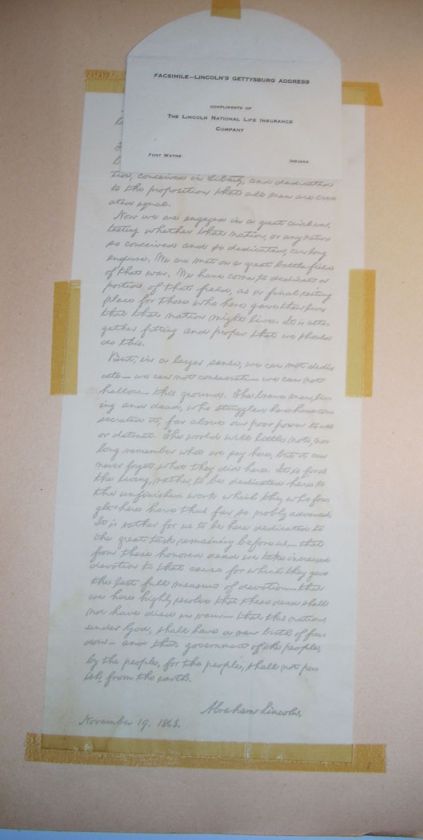 FACSIMILE—LINCOLN'S GETTYSBURG ADDRESS
COMPLIMENTS OF
THE LINCOLN NATIONAL LIFE INSURANCE
COMPANY
FORT WAYNE INDIANA
tion, conceived in liberty, and dedicated
to the proposition that all men are cre-
ated equal.
Now we are engaged in a great civil war,
testing whether that nation, or any nation
so conceived and so dedicated, can long
endure. We are met on a great battle field
of that war. We have come to dedicate a
portion of that field, as a final resting
place for those who here gave their lives
that that nation might live. It is alto-
gether fitting and proper that we should
do this.
But, in a larger sense, we can not dedi-
cate— we can not consecrate— we can not
hallow— this ground. The brave men, liv-
ing and dead, who struggled here have con-
secrated it, far above our poor power to add
or detract. The world will little note, nor
long remember what we say here, but it can
never forget what they did here. It is for us
the living, rather, to be dedicated here to
the unfinished work which they who fou-
ght here have thus far so nobly advanced.
It is rather for us to be here dedicated to
the great task remaining before us— that
from these honored dead we take increased
devotion to that cause for which they gave
the last full measure of devotion— that
we here highly resolve that these dead shall
not have died in vain— that this nation,
under God, shall have a new birth of free-
dom— and that government of the people,
by the people, for the people, shall not per-
ish from the earth.
Abraham Lincoln.
November 19. 1863.